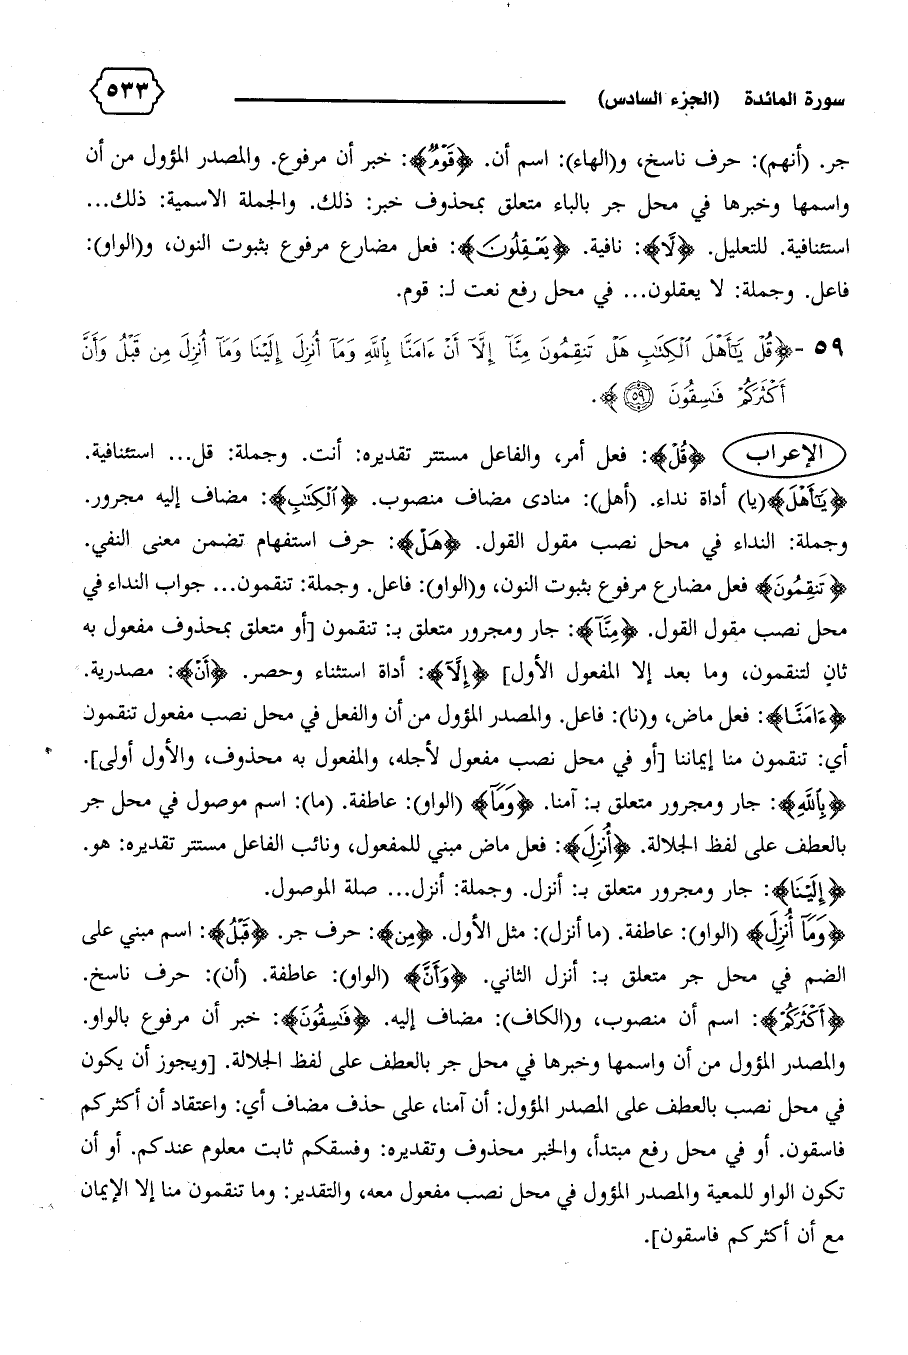 سورة المائدة (الجزء السادس) ٥٣٣
جر. (أنهم): حرف ناسخ، و(الهاء): اسم أن. ﴿قَوْمٌ﴾: خبر أن مرفوع. والمصدر المؤول من أن
واسمها وخبرها في محل جر بالباء متعلق بمحذوف خبر: ذلك. والجملة الاسمية: ذلك...
استئنافية. للتعليل. ﴿لَّا﴾: نافية. ﴿يَعْقِلُونَ﴾: فعل مضارع مرفوع بثبوت النون، و(الواو):
فاعل. وجملة: لا يعقلون... في محل رفع نعت لـ: قوم.
٥٩ - ﴿قُلْ يَٰٓأَهْلَ ٱلْكِتَٰبِ هَلْ تَنقِمُونَ مِنَّآ إِلَّآ أَنْ ءَامَنَّا بِٱللَّهِ وَمَآ أُنزِلَ إِلَيْنَا وَمَآ أُنزِلَ مِن قَبْلُ وَأَنَّ
أَكْثَرَكُمْ فَٰسِقُونَ ۝٥٩﴾.
الإعراب ﴿قُلْ﴾: فعل أمر، والفاعل مستتر تقديره: أنت. وجملة: قل... استئنافية.
﴿يَٰٓأَهْلَ﴾(يا) أداة نداء. (أهل): منادى مضاف منصوب. ﴿ٱلْكِتَٰبِ﴾: مضاف إليه مجرور.
وجملة: النداء في محل نصب مقول القول. ﴿هَلْ﴾: حرف استفهام تضمن معنى النفي.
﴿تَنقِمُونَ﴾ فعل مضارع مرفوع بثبوت النون، و(الواو): فاعل. وجملة: تنقمون... جواب النداء في
محل نصب مقول القول. ﴿مِنَّآ﴾: جار ومجرور متعلق بـ: تنقمون [أو متعلق بمحذوف مفعول به
ثانٍ لتنقمون، وما بعد إلا المفعول الأول] ﴿إِلَّآ﴾: أداة استثناء وحصر. ﴿أَنْ﴾: مصدرية.
﴿ءَامَنَّا﴾: فعل ماض، و(نا): فاعل. والمصدر المؤول من أن والفعل في محل نصب مفعول تنقمون
أي: تنقمون منا إيماننا [أو في محل نصب مفعول لأجله، والمفعول به محذوف، والأول أولى].
﴿بِٱللَّهِ﴾: جار ومجرور متعلق بـ: آمنا. ﴿وَمَآ﴾ (الواو): عاطفة. (ما): اسم موصول في محل جر
بالعطف على لفظ الجلالة. ﴿أُنزِلَ﴾: فعل ماض مبني للمفعول، ونائب الفاعل مستتر تقديره: هو.
﴿إِلَيْنَا﴾: جار ومجرور متعلق بـ: أنزل. وجملة: أنزل... صلة الموصول.
﴿وَمَآ أُنزِلَ﴾ (الواو): عاطفة. (ما أنزل): مثل الأول. ﴿مِن﴾: حرف جر. ﴿قَبْلُ﴾: اسم مبني على
الضم في محل جر متعلق بـ: أنزل الثاني. ﴿وَأَنَّ﴾ (الواو): عاطفة. (أن): حرف ناسخ.
﴿أَكْثَرَكُمْ﴾: اسم أن منصوب، و(الكاف): مضاف إليه. ﴿فَٰسِقُونَ﴾: خبر أن مرفوع بالواو.
والمصدر المؤول من أن واسمها وخبرها في محل جر بالعطف على لفظ الجلالة. [ويجوز أن يكون
في محل نصب بالعطف على المصدر المؤول: أن آمنا، على حذف مضاف أي: واعتقاد أن أكثركم
فاسقون. أو في محل رفع مبتدأ، والخبر محذوف وتقديره: وفسقكم ثابت معلوم عندكم. أو أن
تكون الواو للمعية والمصدر المؤول في محل نصب مفعول معه، والتقدير: وما تنقمون منا إلا الإيمان
مع أن أكثركم فاسقون].